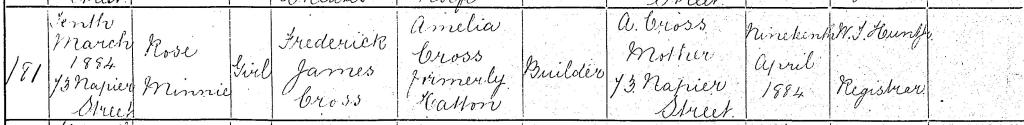 181
Tenth
March
1884
73 Napier
Street
Rose
Minnie
Girl
Frederick
James
Cross
Amelia
Cross
formerly
Hatton
Builder
A. Cross
Mother
73 Napier
Street.
Nineteenth
April
1884
Registrar